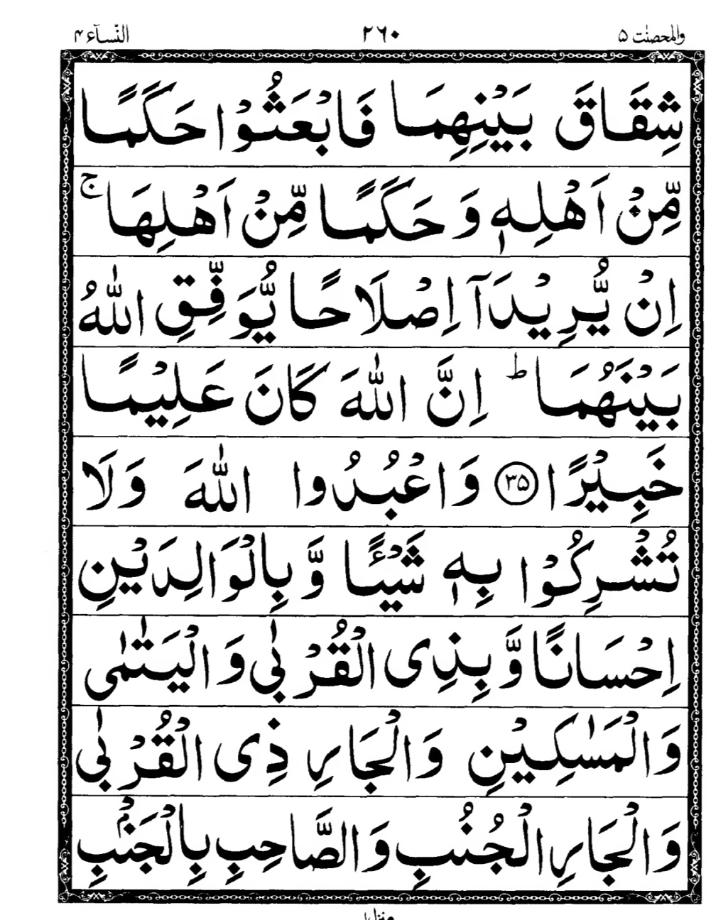 والمحصنٰت ۵ ۲۶۰ النّسآء ۴
شِقَاقَ بَيْنِهِمَا فَابْعَثُوْا حَكَمًا
مِّنْ اَهْلِهٖ وَ حَكَمًا مِّنْ اَهْلِهَا ۚ
اِنْ يُّرِيْدَاۤ اِصْلَاحًا يُّوَفِّقِ اللّٰهُ
بَيْنَهُمَا ؕ اِنَّ اللّٰهَ كَانَ عَلِيْمًا
خَبِيْرًا ﴿۳۵﴾ وَ اعْبُدُوا اللّٰهَ وَ لَا
تُشْرِكُوْا بِهٖ شَيْـًٔا وَّ بِالْوَالِدَيْنِ
اِحْسَانًا وَّ بِذِی الْقُرْبٰی وَ الْيَتٰمٰی
وَ الْمَسٰكِيْنِ وَ الْجَارِ ذِی الْقُرْبٰی
وَ الْجَارِ الْجُنُبِ وَ الصَّاحِبِ بِالْجَنْۢبِ
منزل ۱